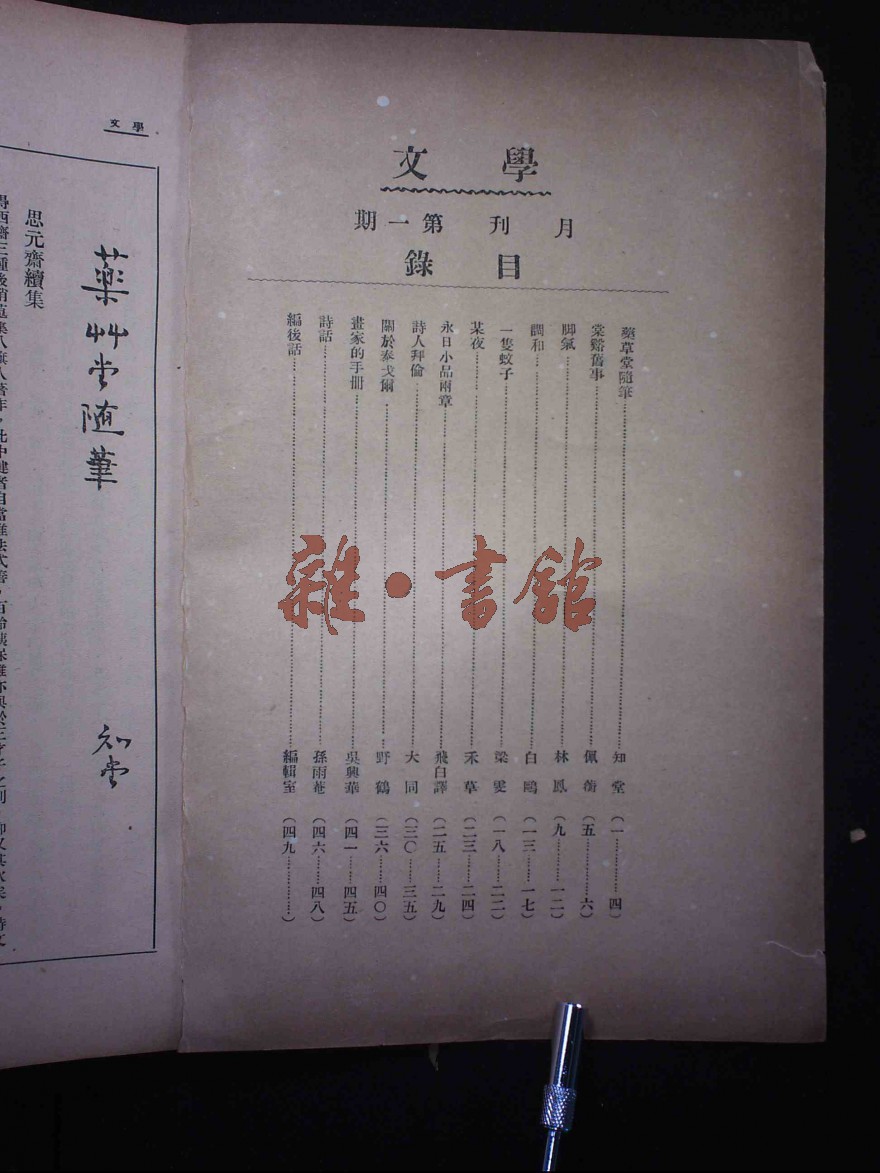 學文
月刊第一期
目錄
藥草堂隨筆……知堂（一……四）
棠谿舊事……佩蘅（五……六）
脚氣……林鳳（九……一二）
調和……白鷗（一三……一七）
一隻蚊子……梁雯（一八……二二）
某夜……禾草（二三……二四）
永日小品兩章……飛白譯（二五……二九）
詩人拜倫……大同（三〇……三五）
關於泰戈爾……野鶴（三六……四〇）
畫家的手冊……吳興華（四一……四五）
詩話……孫雨菴（四六……四八）
編後話……編輯室（四九……）
學文
藥艸堂随筆
知堂
思元齋續集
雜·書館